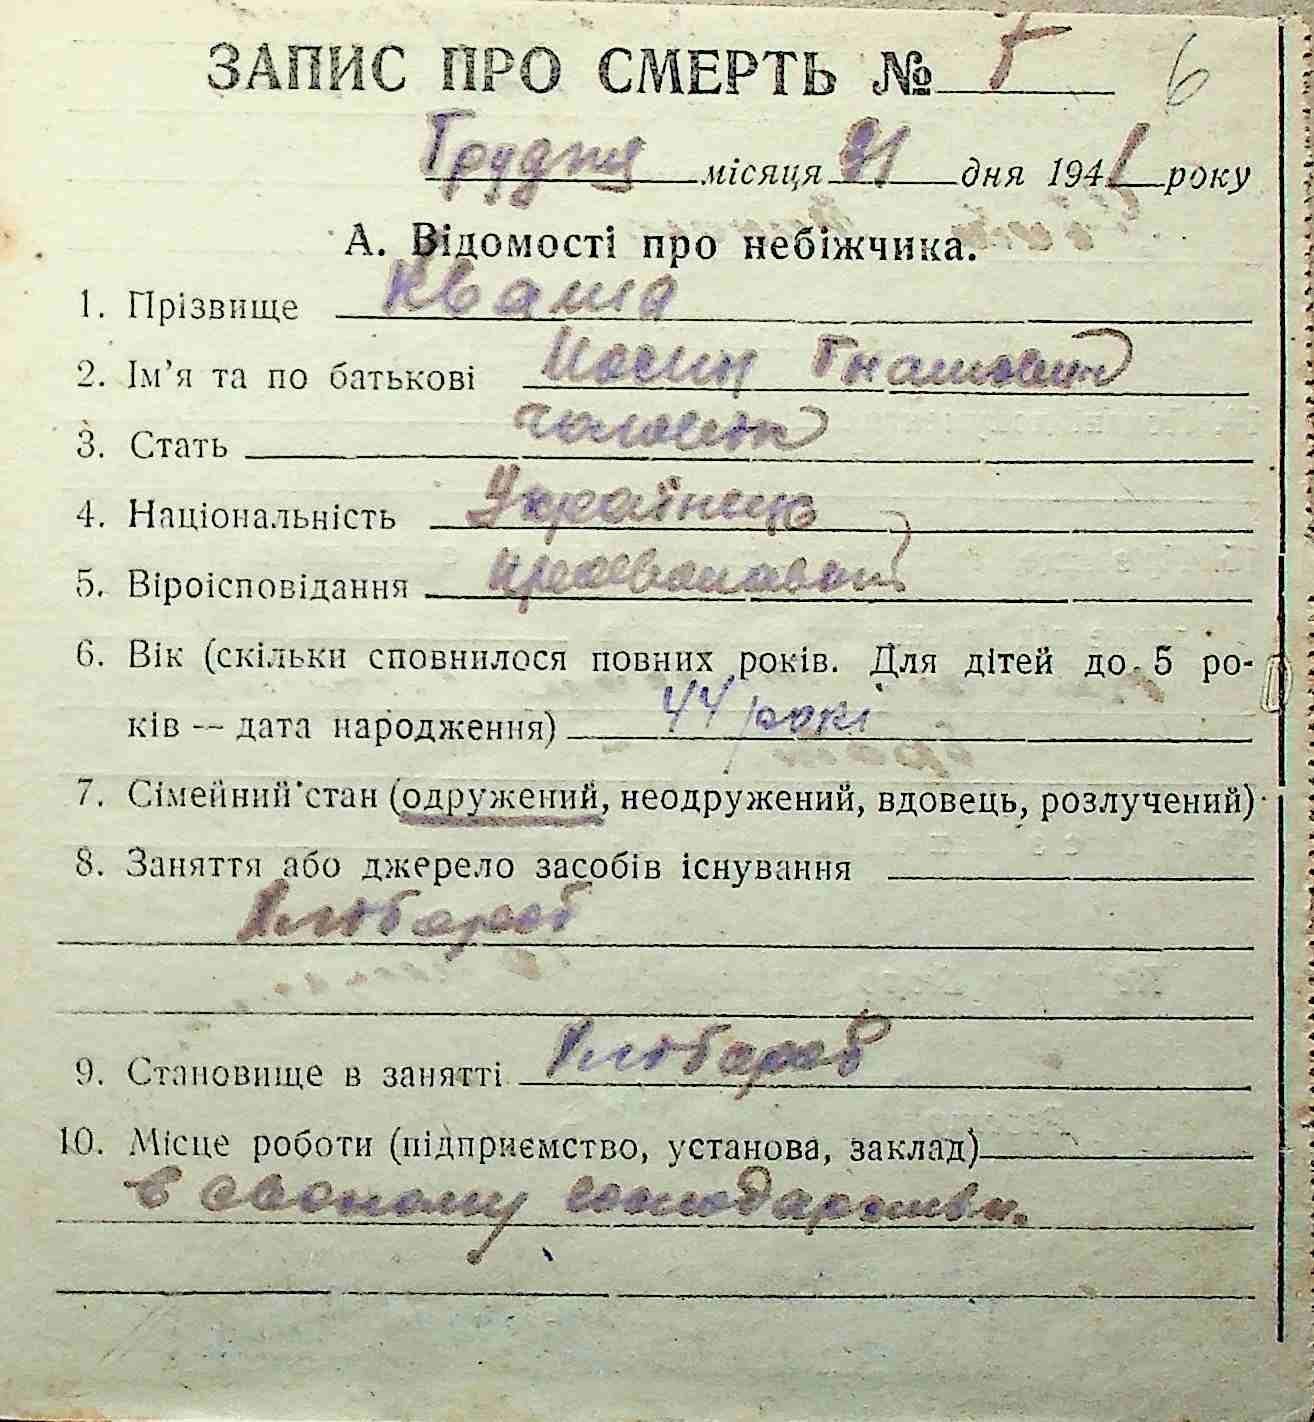 ЗАПИС ПРО СМЕРТЬ № 5 6
Грудня місяця 31 дня 1941 року
А. Відомості про небіжчика.
1. Прізвище Кваша
2. Ім'я та по батькові Иосип Гнатович
3. Стать
4. Національність Українець
5. Віроісповідання
6. Вік (скільки сповнилося повних років. Для дітей до 5 ро-
ків — дата народження) 44 роки
7. Сімейний стан (одружений, неодружений, вдовець, розлучений)
8. Заняття або джерело засобів існування
Хлібороб
9. Становище в занятті Хлібороб
10. Місце роботи (підприємство, установа, заклад)
в своєму господарстві.